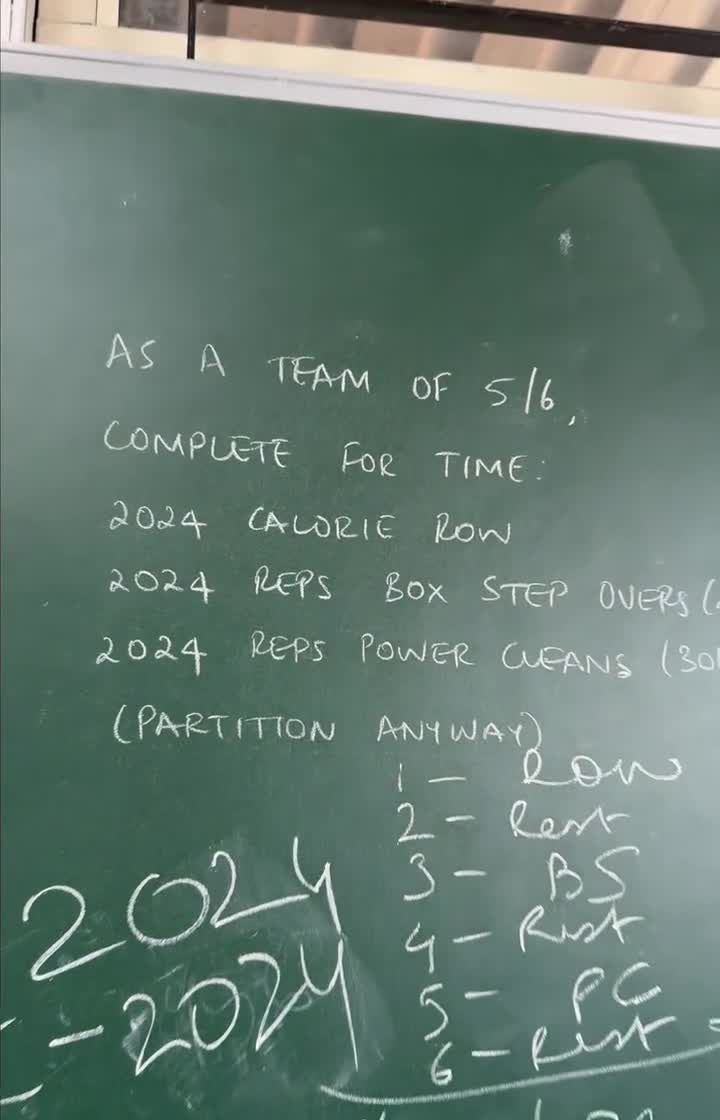 AS A TEAM OF 5/6,
COMPLETE FOR TIME:
2024 CALORIE ROW
2024 REPS BOX STEP OVERS (
2024 REPS POWER CLEANS (30
(PARTITION ANYWAY)
1 - ROW
2 - Rest
3 - BS
4 - Rest
5 - PC
6 - Rest
2024
- 2024